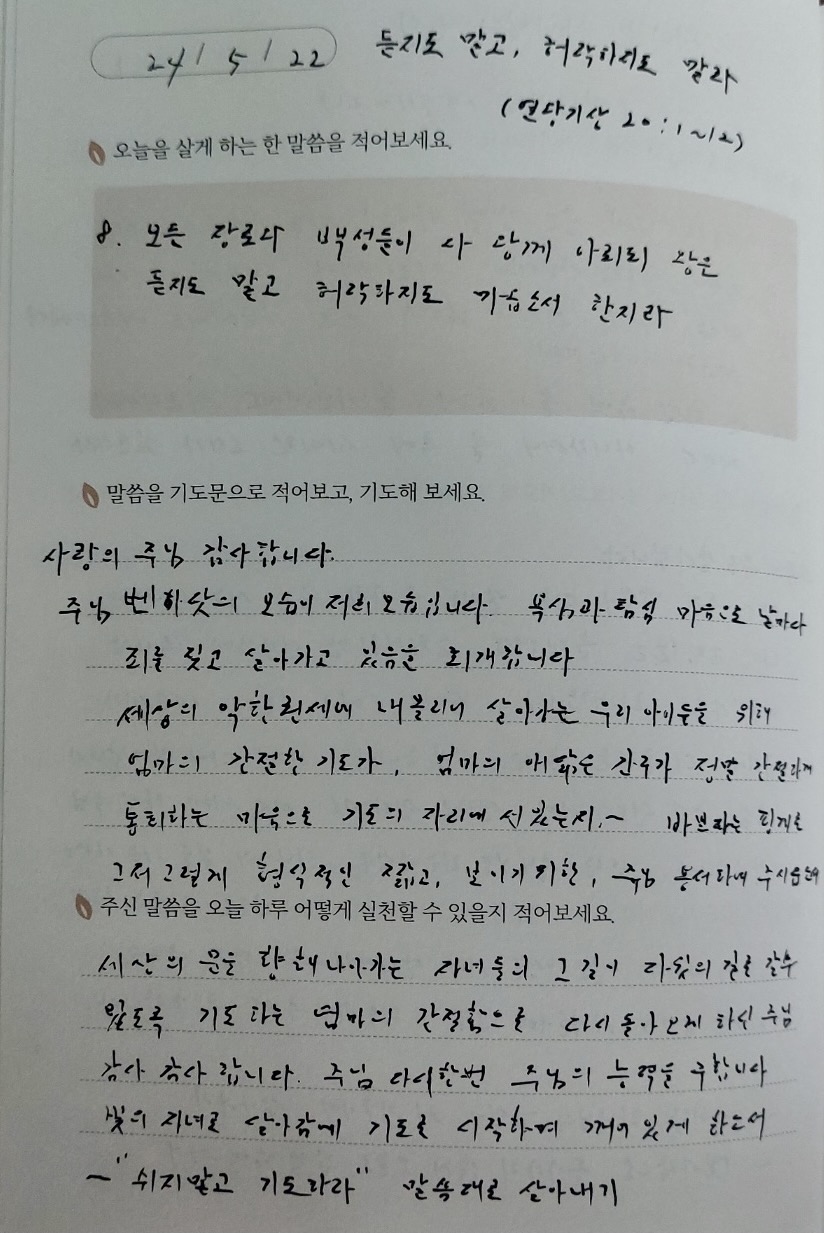 24 / 5 / 22 듣지도 말고, 허락하지도 말라
(열왕기상 20:1~12)
오늘을 살게 하는 한 말씀을 적어보세요.
8. 모든 장로와 백성들이 다 왕께 아뢰되 왕은
듣지도 말고 허락하지도 마옵소서 한지라
말씀을 기도문으로 적어보고, 기도해 보세요.
사랑의 주님 감사합니다.
주님 벤하닷의 모습이 저희 모습입니다. 욕심과 탐심 마음으로 날마다
죄를 짖고 살아가고 있음을 회개합니다
세상의 악한권세에 내몰리며 살아가는 우리 아이들을 위해
엄마의 간절한 기도가, 엄마의 애닮은 간구가 정말 간절하게
통회하는 마음으로 기도의 자리에 서있는지.~ 바쁘다는 핑계로
그저그렇게 형식적인 짧고, 보이기위한, 주님 용서하여 주시옵소서
주신 말씀을 오늘 하루 어떻게 실천할 수 있을지 적어보세요.
세상의 문을 향해나아가는 자녀들의 그 길이 다윗의 길로 갈수
있도록 기도하는 엄마의 간절함으로 다시 돌아오게 하신 주님
감사 감사 합니다. 주님 다시한번 주님의 능력을 구합니다
빛의 자녀로 살아감에 기도로 시작하며 깨어 있게 하소서
~ "쉬지말고 기도하라" 말씀대로 살아내기